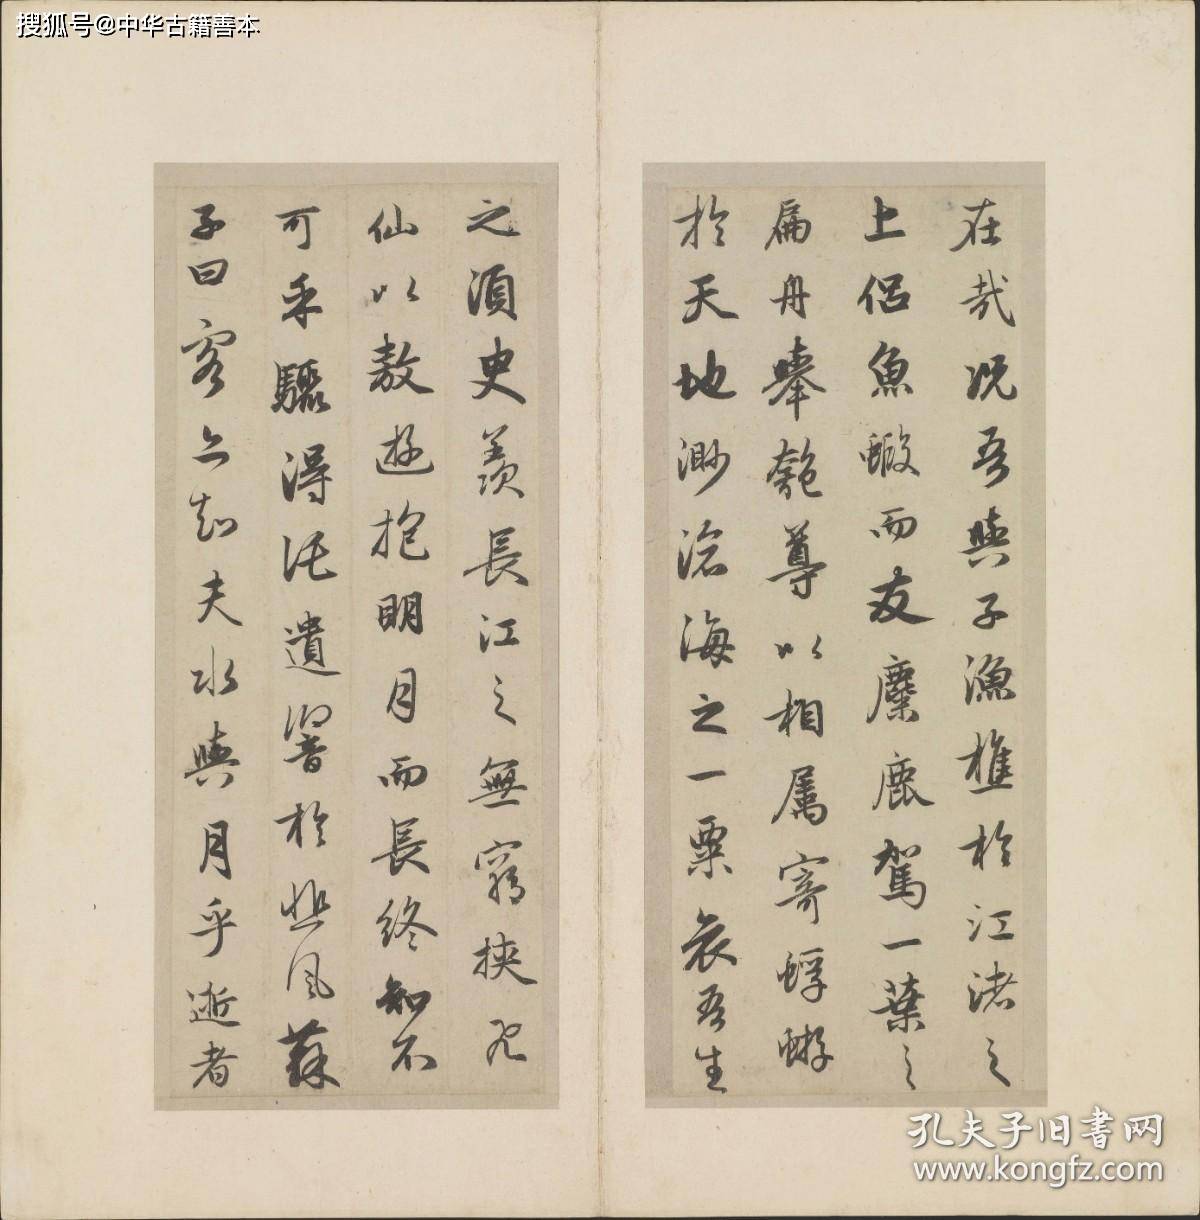 搜狐号@中华古籍善本
在哉况吾與子漁樵於江渚之
上侶魚蝦而友麋鹿駕一葉之
扁舟舉匏尊以相屬寄蜉蝣
於天地渺滄海之一粟哀吾生
之須臾羨長江之無窮挾飛
仙以敖遊抱明月而長終知不
可乎驟得託遺響於悲風蘇
子曰客亦知夫水與月乎逝者
孔夫子旧書网
www.kongfz.com